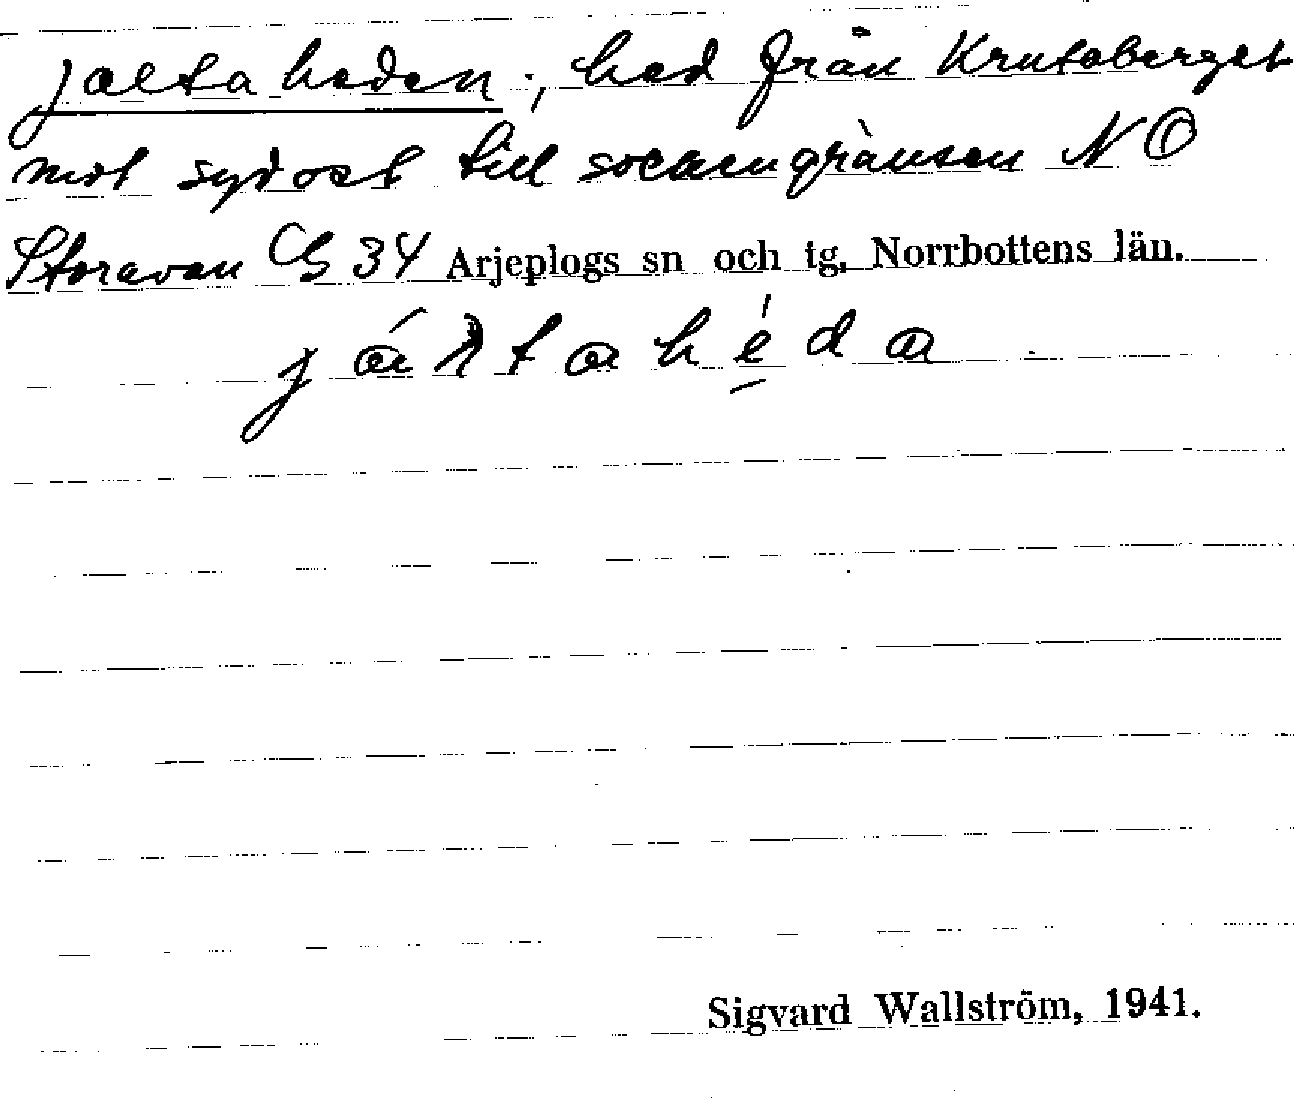 jaltaheden, hed från Krutaberget
mot sydost till sockengränsen NO
Storavan G 34 Arjeplogs sn och tg, Norrbottens län.
Sigvard Wallström, 1941.